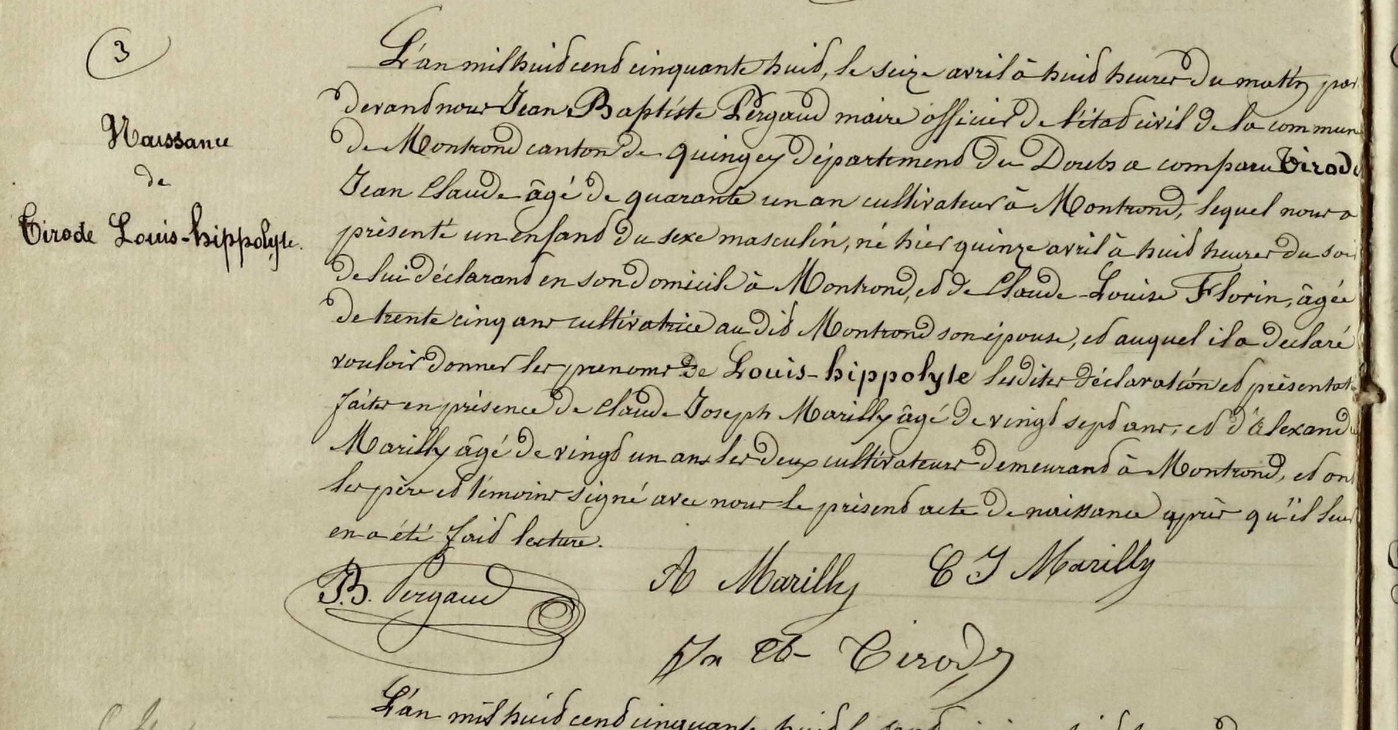 3
Naissance
de
Tirode Louis-hippolyte.
L'an mil huit cent cinquante huit, le seize avril à huit heures du matin par
devant nous Jean Baptiste Pergaud maire officier de l'état civil de la commun
de Montrond canton de quingey département du Doubs a comparu Tirode
Jean Claude âgé de quarante un an cultivateur à Montrond, lequel nous a
présenté un enfant du sexe masculin, né hier quinze avril à huit heures du soi
de lui déclarant en son domicile à Montrond, et de Claude-Louise Florin, âgée
de trente cinq ans cultivatrice au dit Montrond son épouse, et auquel il a declaré
vouloir donner les prenoms de Louis-hippolyte les dites déclaration et présentat
faites en présence de Claude Joseph Marilly âgé de vingt sept ans, et d'Alexand
Marilly âgé de vingt un ans les deux cultivateurs demeurant à Montrond, et ont
les père et témoins signé avec nous le présent acte de naissance après qu'il leur
en a été fait lecture.
J.B. Pergaud A Marilly C J Marilly
Jn Cl Tirode
L'an mil huit cent cinquante huit